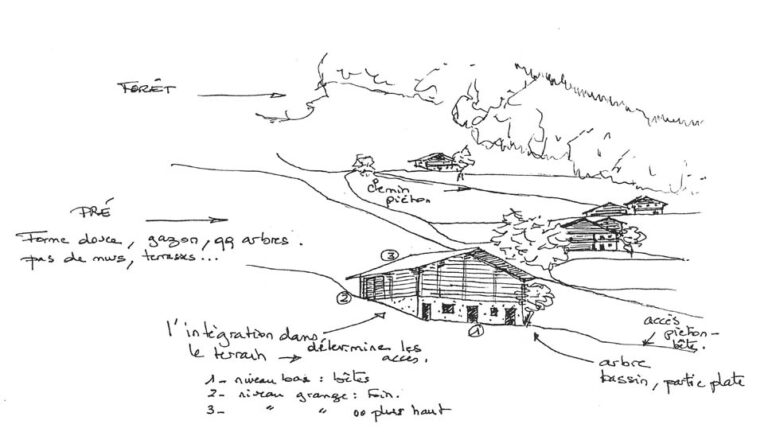 FORÊT
chemin
piéton
PRÉ
Forme douce, gazon, qq arbres.
pas de murs, terrasses...
3
2
1
l'intégration dans
le terrain → détermine les
accès.
1_ niveau bas : bêtes
2_ niveau grange : Foin.
3_ " " ou plus haut
accès
piéton-
bête.
arbre
bassin, partie plate